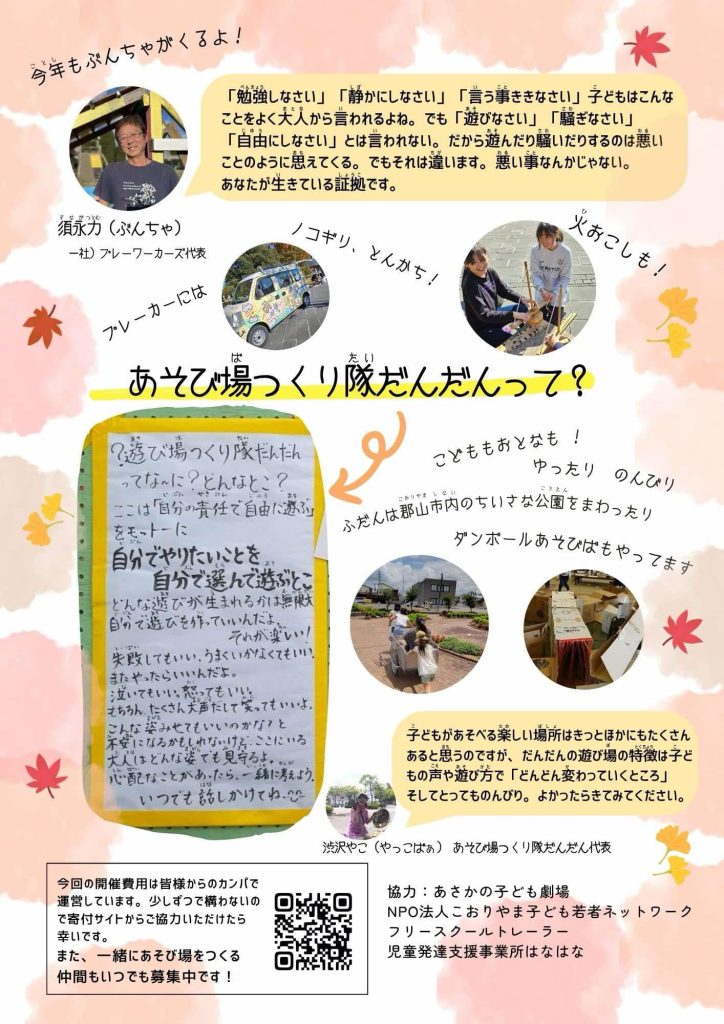 今年もぶんちゃがくるよ！
「勉強しなさい」「静かにしなさい」「言う事ききなさい」子どもはこんな
ことをよく大人から言われるよね。でも「遊びなさい」「騒ぎなさい」
「自由にしなさい」とは言われない。だから遊んだり騒いだりするのは悪い
ことのように思えてくる。でもそれは違います。悪い事なんかじゃない。
あなたが生きている証拠です。
須永力（ぶんちゃ）
一社）プレーワーカーズ代表
プレーカーには
ノコギリ、とんかち！
火おこしも！
あそび場つくり隊だんだんって？
？遊び場つくり隊だんだん
ってな〜に？どんなとこ？
ここは「自分の責任で自由に遊ぶ」
をモットーに
自分でやりたいことを
自分で選んで遊ぶとこ
どんな遊びが生まれるかは無限大
自分で遊びを作っていいんだよ。
それが楽しい！
失敗してもいい。うまくいかなくてもいい。
またやったらいいんだよ。
泣いてもいい。怒ってもいい。
もちろん、たくさん大声だして笑ってもいいよ。
こんな姿みせてもいいのかな？と
不安になるかもしれないけど、ここにいる
大人はどんな姿でも見守るよ。
心配なことがあったら、一緒に考えよう。
いつでも話しかけてね。
こどももおとなも！
ゆったり のんびり
ふだんは郡山市内のちいさな公園をまわったり
ダンボールあそびばもやってます
子どもがあそべる楽しい場所はきっとほかにもたくさん
あると思うのですが、だんだんの遊び場の特徴は子ど
もの声や遊び方で「どんどん変わっていくところ」
そしてとってものんびり。よかったらきてみてください。
渋沢やこ（やっこばぁ） あそび場つくり隊だんだん代表
今回の開催費用は皆様からのカンパで
運営しています。少しずつで構わないの
で寄付サイトからご協力いただけたら
幸いです。
また、一緒にあそび場をつくる
仲間もいつでも募集中です！
協力：あさかの子ども劇場
NPO法人こおりやま子ども若者ネットワーク
フリースクールトレーラー
児童発達支援事業所はなはな